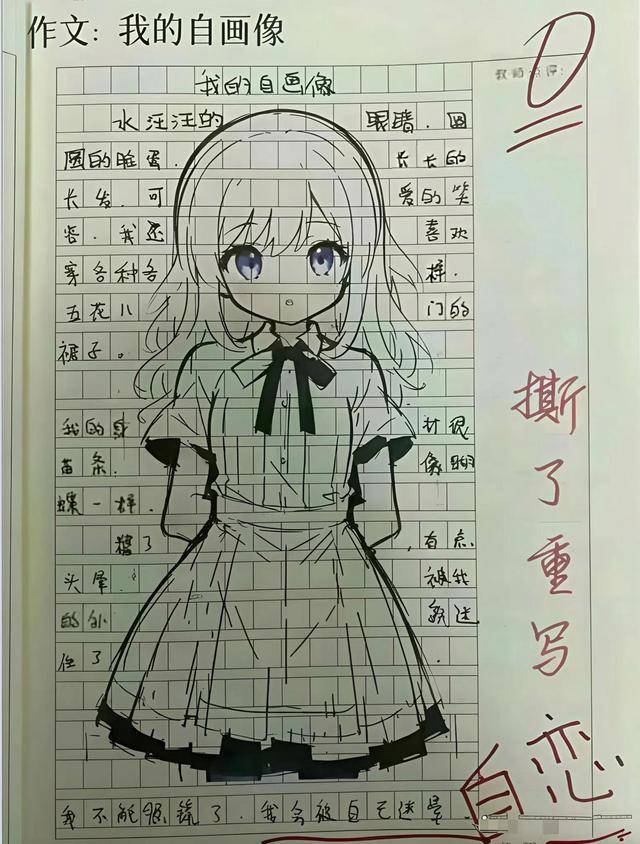 作文：我的自画像
0
教师点评：
我的自画像
水汪汪的眼睛．圆
圆的脸蛋．长长的
长发．可爱的笑
容．我还喜欢
穿各种各样．
五花八门的
裙子。
我的身材很
苗条．像蝴
蝶一样．
糟了，有点
头晕．被我
的外貌迷
住了．
我不能照镜了．我会被自己迷晕．
撕
了
重
写
自恋